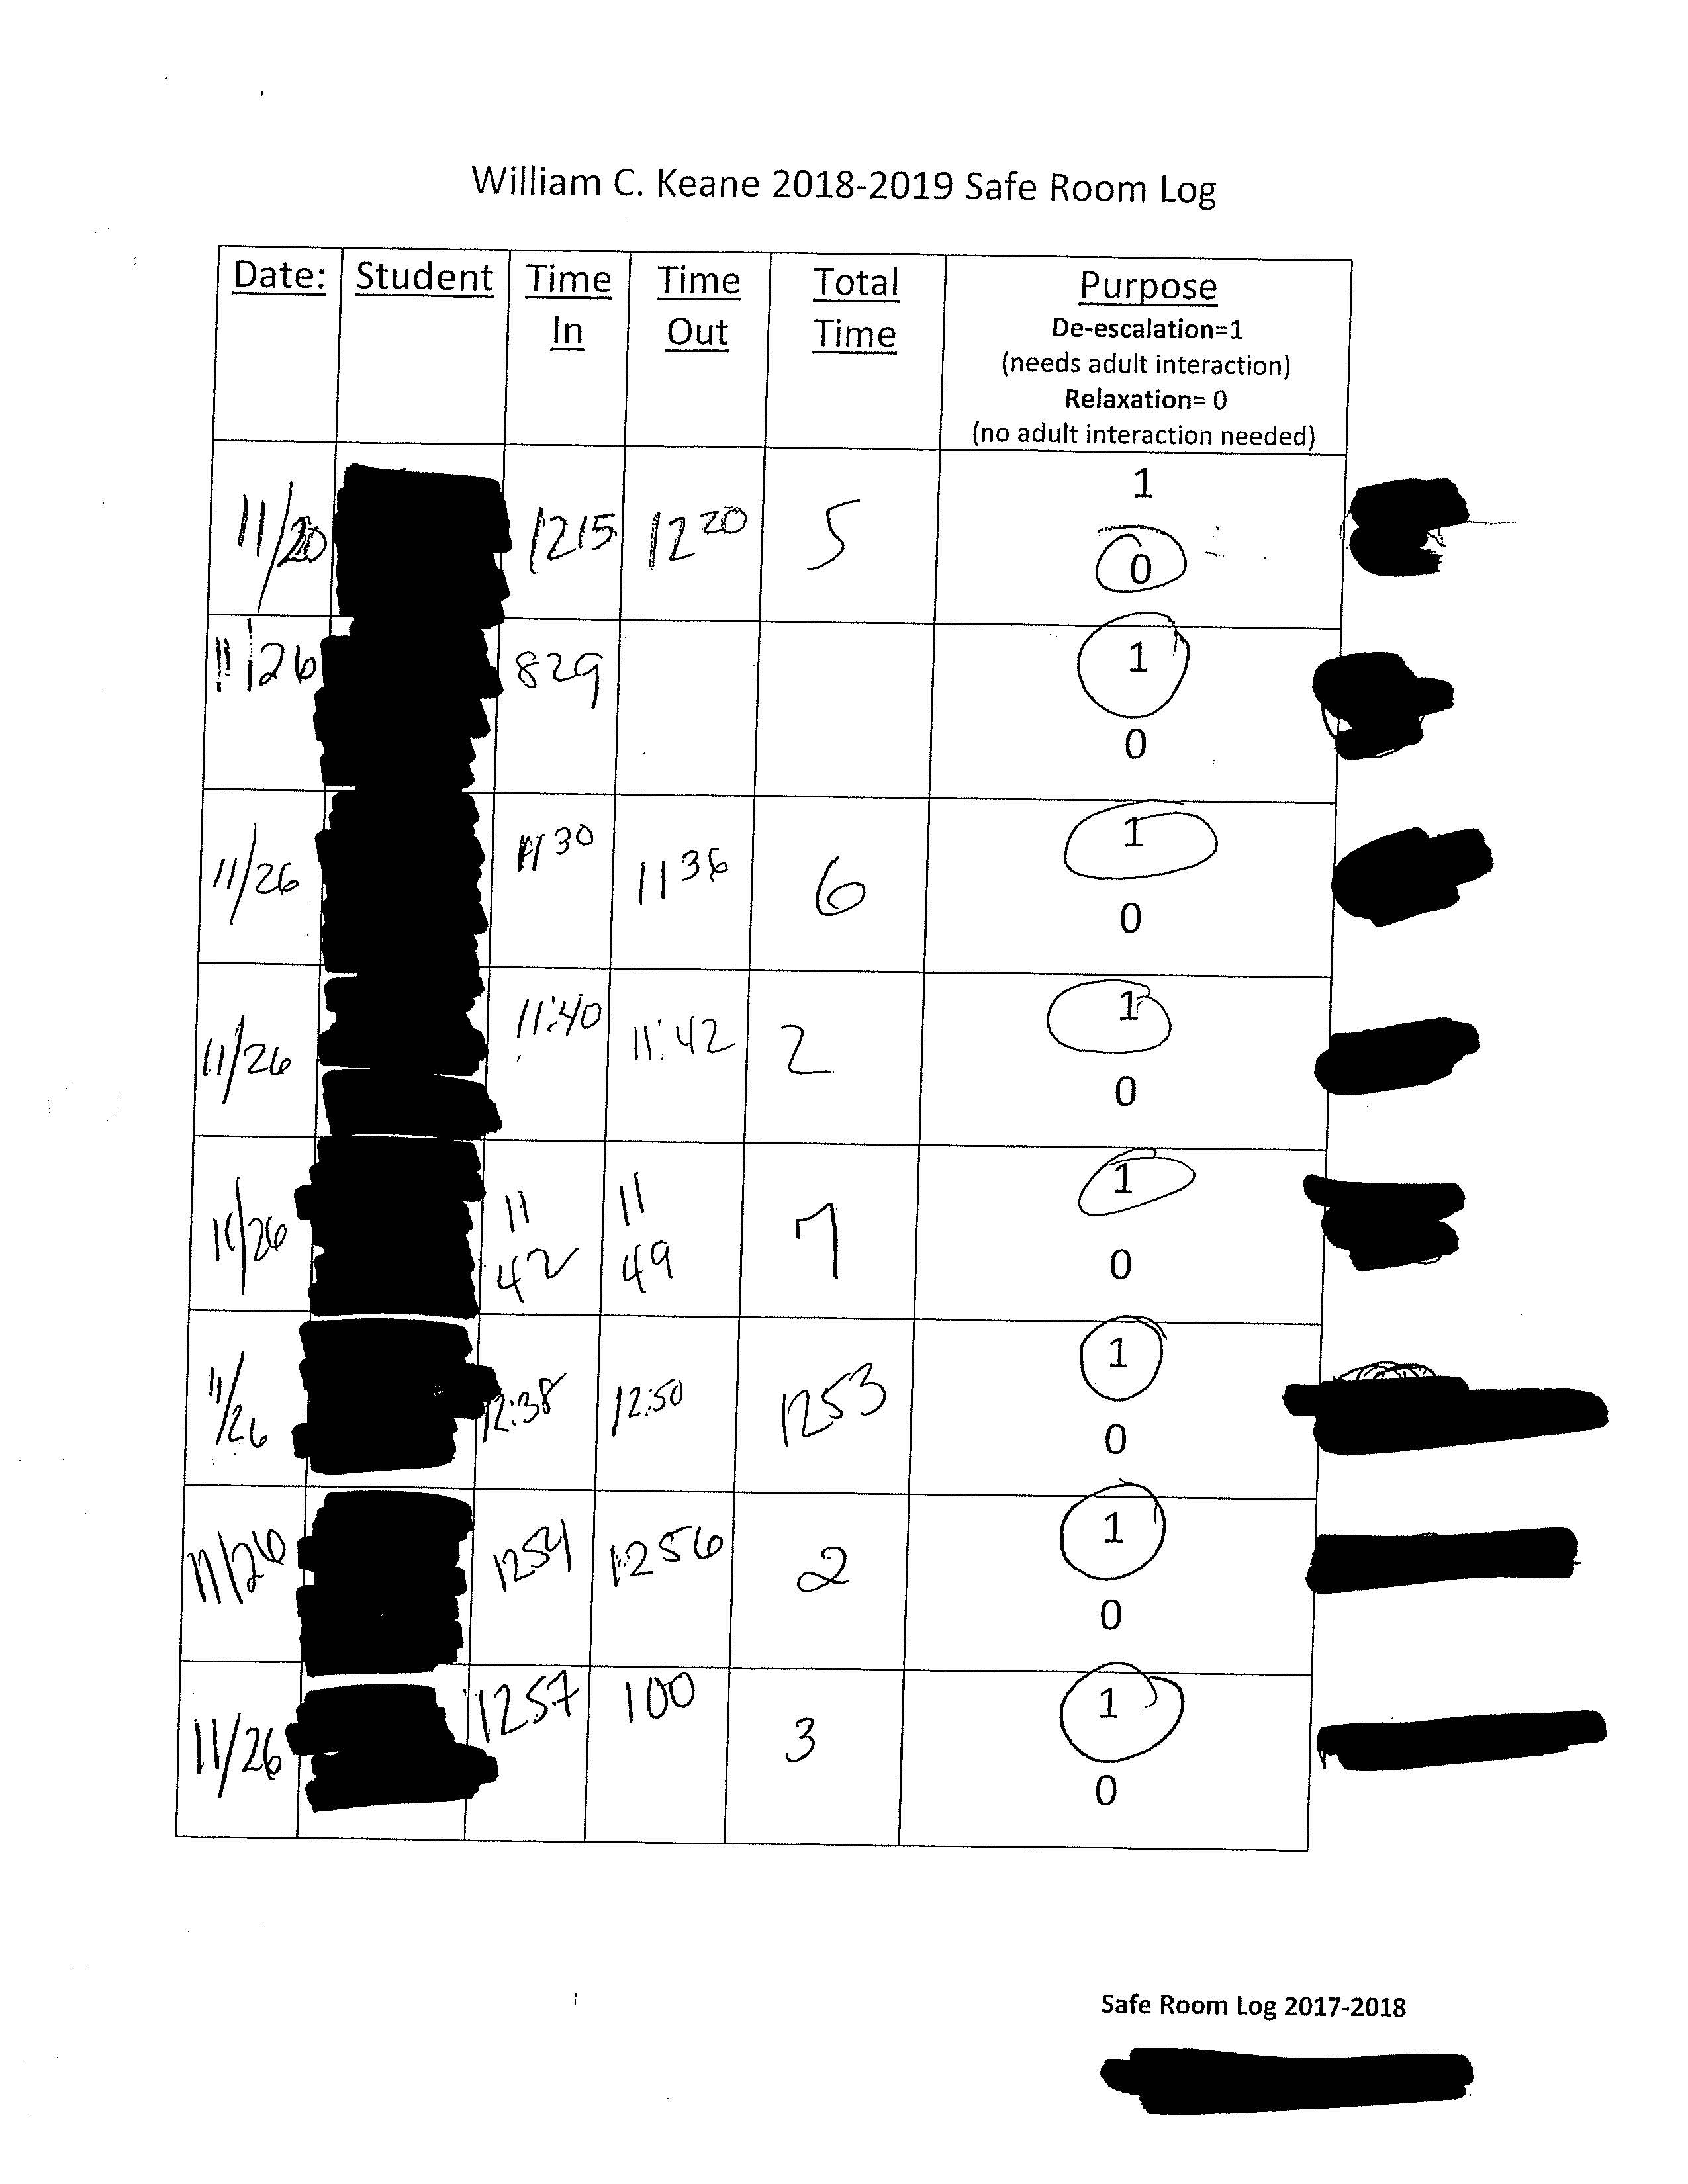 William C. Keane 2018-2019 Safe Room Log
Date: Student Time In Time Out Total Time Purpose
De-escalation=1
(needs adult interaction)
Relaxation= 0
(no adult interaction needed)
11/20 1215 1220 5 1
0
11/26 829 1
0
11/26 1130 1136 6 1
0
11/26 11:40 11:42 2 1
0
11/26 11 42 11 49 7 1
0
11/26 12:38 12:50 1253 1
0
11/26 1254 1256 2 1
0
11/26 1257 100 3 1
0
Safe Room Log 2017-2018